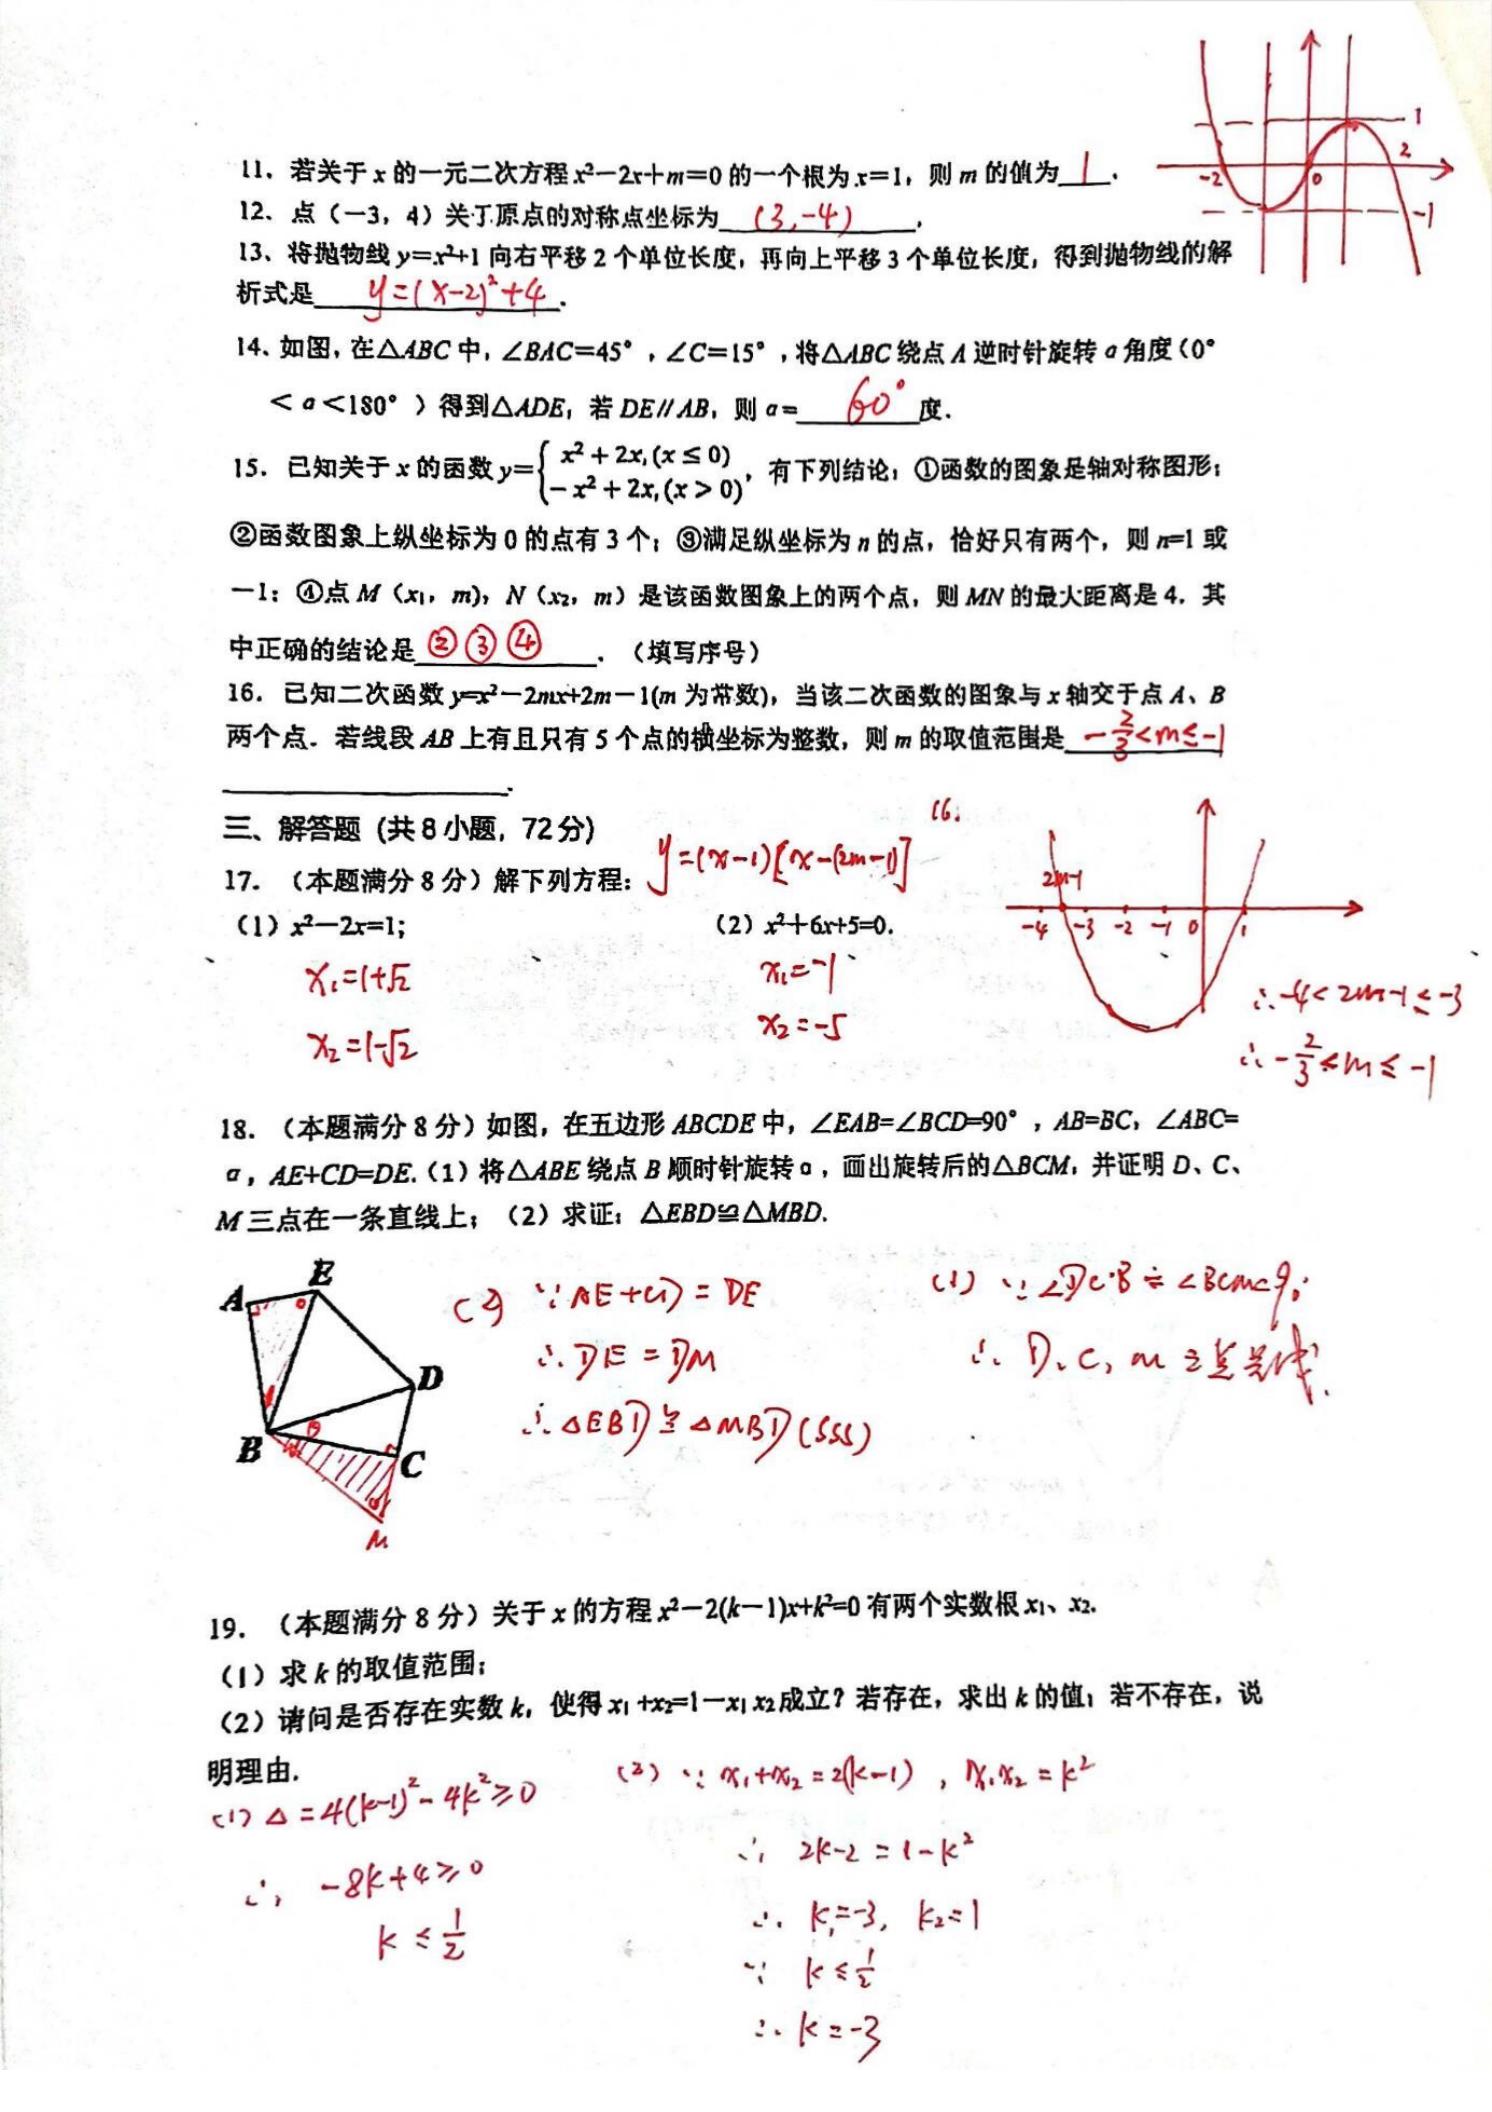 11．若关于 x 的一元二次方程 x²－2x＋m＝0 的一个根为 x＝1，则 m 的值为 1 ．
12．点（－3，4）关于原点的对称点坐标为 (3,-4) ．
13、将抛物线 y＝x²＋1 向右平移 2 个单位长度，再向上平移 3 个单位长度，得到抛物线的解
析式是 y=(x-2)²+4 ．
14、如图，在△ABC 中，∠BAC＝45°，∠C＝15°，将△ABC 绕点 A 逆时针旋转 α 角度（0°
＜α＜180°）得到△ADE，若 DE∥AB，则 α＝ 60° 度．
15．已知关于 x 的函数 y＝{ x²＋2x,(x ≤ 0)
－x²＋2x,(x > 0) ，有下列结论：①函数的图象是轴对称图形；
②函数图象上纵坐标为 0 的点有 3 个；③满足纵坐标为 n 的点，恰好只有两个，则 n=1 或
－1；④点 M（x₁，m），N（x₂，m）是该函数图象上的两个点，则 MN 的最大距离是 4．其
中正确的结论是 ②③④ ．（填写序号）
16．已知二次函数 y=x²－2mx+2m－1(m 为常数)，当该二次函数的图象与 x 轴交于点 A、B
两个点．若线段 AB 上有且只有 5 个点的横坐标为整数，则 m 的取值范围是 -2/3<m≤-1
．
1
2
-2
0
-1
三、解答题（共 8 小题，72 分）
y=(x-1)[x-(2m-1)]
16.
17．（本题满分 8 分）解下列方程：
（1）x²－2x=1;
（2）x²＋6x+5=0.
x₁=1+√2
x₂=1-√2
x₁=-1
x₂=-5
2m-1
-4 -3 -2 -1 0 1
∴-4<2m-1≤-3
∴-2/3<m≤-1
18．（本题满分 8 分）如图，在五边形 ABCDE 中，∠EAB=∠BCD=90°，AB=BC，∠ABC=
α，AE+CD=DE.（1）将△ABE 绕点 B 顺时针旋转 α，画出旋转后的△BCM，并证明 D、C、
M 三点在一条直线上；（2）求证：△EBD≌△MBD.
A E D B C M
(2) ∵AE+CD=DE
∴DE=DM
∴△EBD≌△MBD(SSS)
(1) ∵∠DCB=∠BCM=90°
∴D,C,M三点共线.
19．（本题满分 8 分）关于 x 的方程 x²－2(k－1)x+k²=0 有两个实数根 x₁、x₂.
（1）求 k 的取值范围；
（2）请问是否存在实数 k，使得 x₁+x₂=1－x₁x₂ 成立？若存在，求出 k 的值；若不存在，说
明理由．
(1) △=4(k-1)²-4k²≥0
∴ -8k+4≥0
k≤1/2
(2) ∵x₁+x₂=2(k-1), x₁x₂=k²
∴ 2k-2=1-k²
∴ k₁=-3, k₂=1
∵ k≤1/2
∴ k=-3